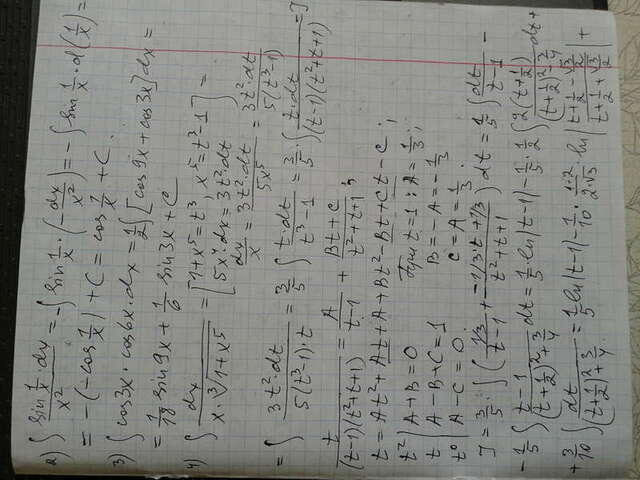 2) ∫ sin 1/x · dx / x² = -∫ sin 1/x · (-dx/x²) = -∫ sin 1/x · d(1/x) =
= -(-cos 1/x) + C = cos 1/x + C.
3) ∫ cos3x · cos6x · dx = 1/2 ∫ [cos9x + cos3x] dx =
= 1/18 sin9x + 1/6 sin3x + C
4) ∫ dx / (x · ³√(1+x⁵)) = [1+x⁵ = t³, x⁵ = t³-1
5x⁴ · dx = 3t² · dt
dx/x = 3t² · dt / 5x⁵ = 3t² · dt / 5(t³-1)] =
= ∫ 3t² · dt / 5(t³-1) · t = 3/5 ∫ t · dt / t³-1 = 3/5 ∫ t · dt / (t-1)(t²+t+1) = J
t / (t-1)(t²+t+1) = A / t-1 + Bt+C / t²+t+1 ;
t = At² + At + A + Bt² - Bt + Ct - C ;
t² | A+B=0 При t=1 : A = 1/3 ;
t | A-B+C=1 B = -A = -1/3
t⁰ | A-C=0. C = A = 1/3.
J = 3/5 · ∫ (1/3 / t-1 + -1/3t+1/3 / t²+t+1) dt = 1/5 ∫ dt / t-1 -
-1/5 ∫ t-1 / (t+1/2)²+3/4 dt = 1/5 ln|t-1| - 1/5 · 1/2 ∫ 2(t+1/2) / (t+1/2)²+3/4 dx +
+ 3/10 ∫ dt / (t+1/2)²+3/4 = 1/5 ln|t-1| - 1/10 · 1·2 / 2√3 · ln | t+1/2-√3/2 / t+1/2+√3/2 | +